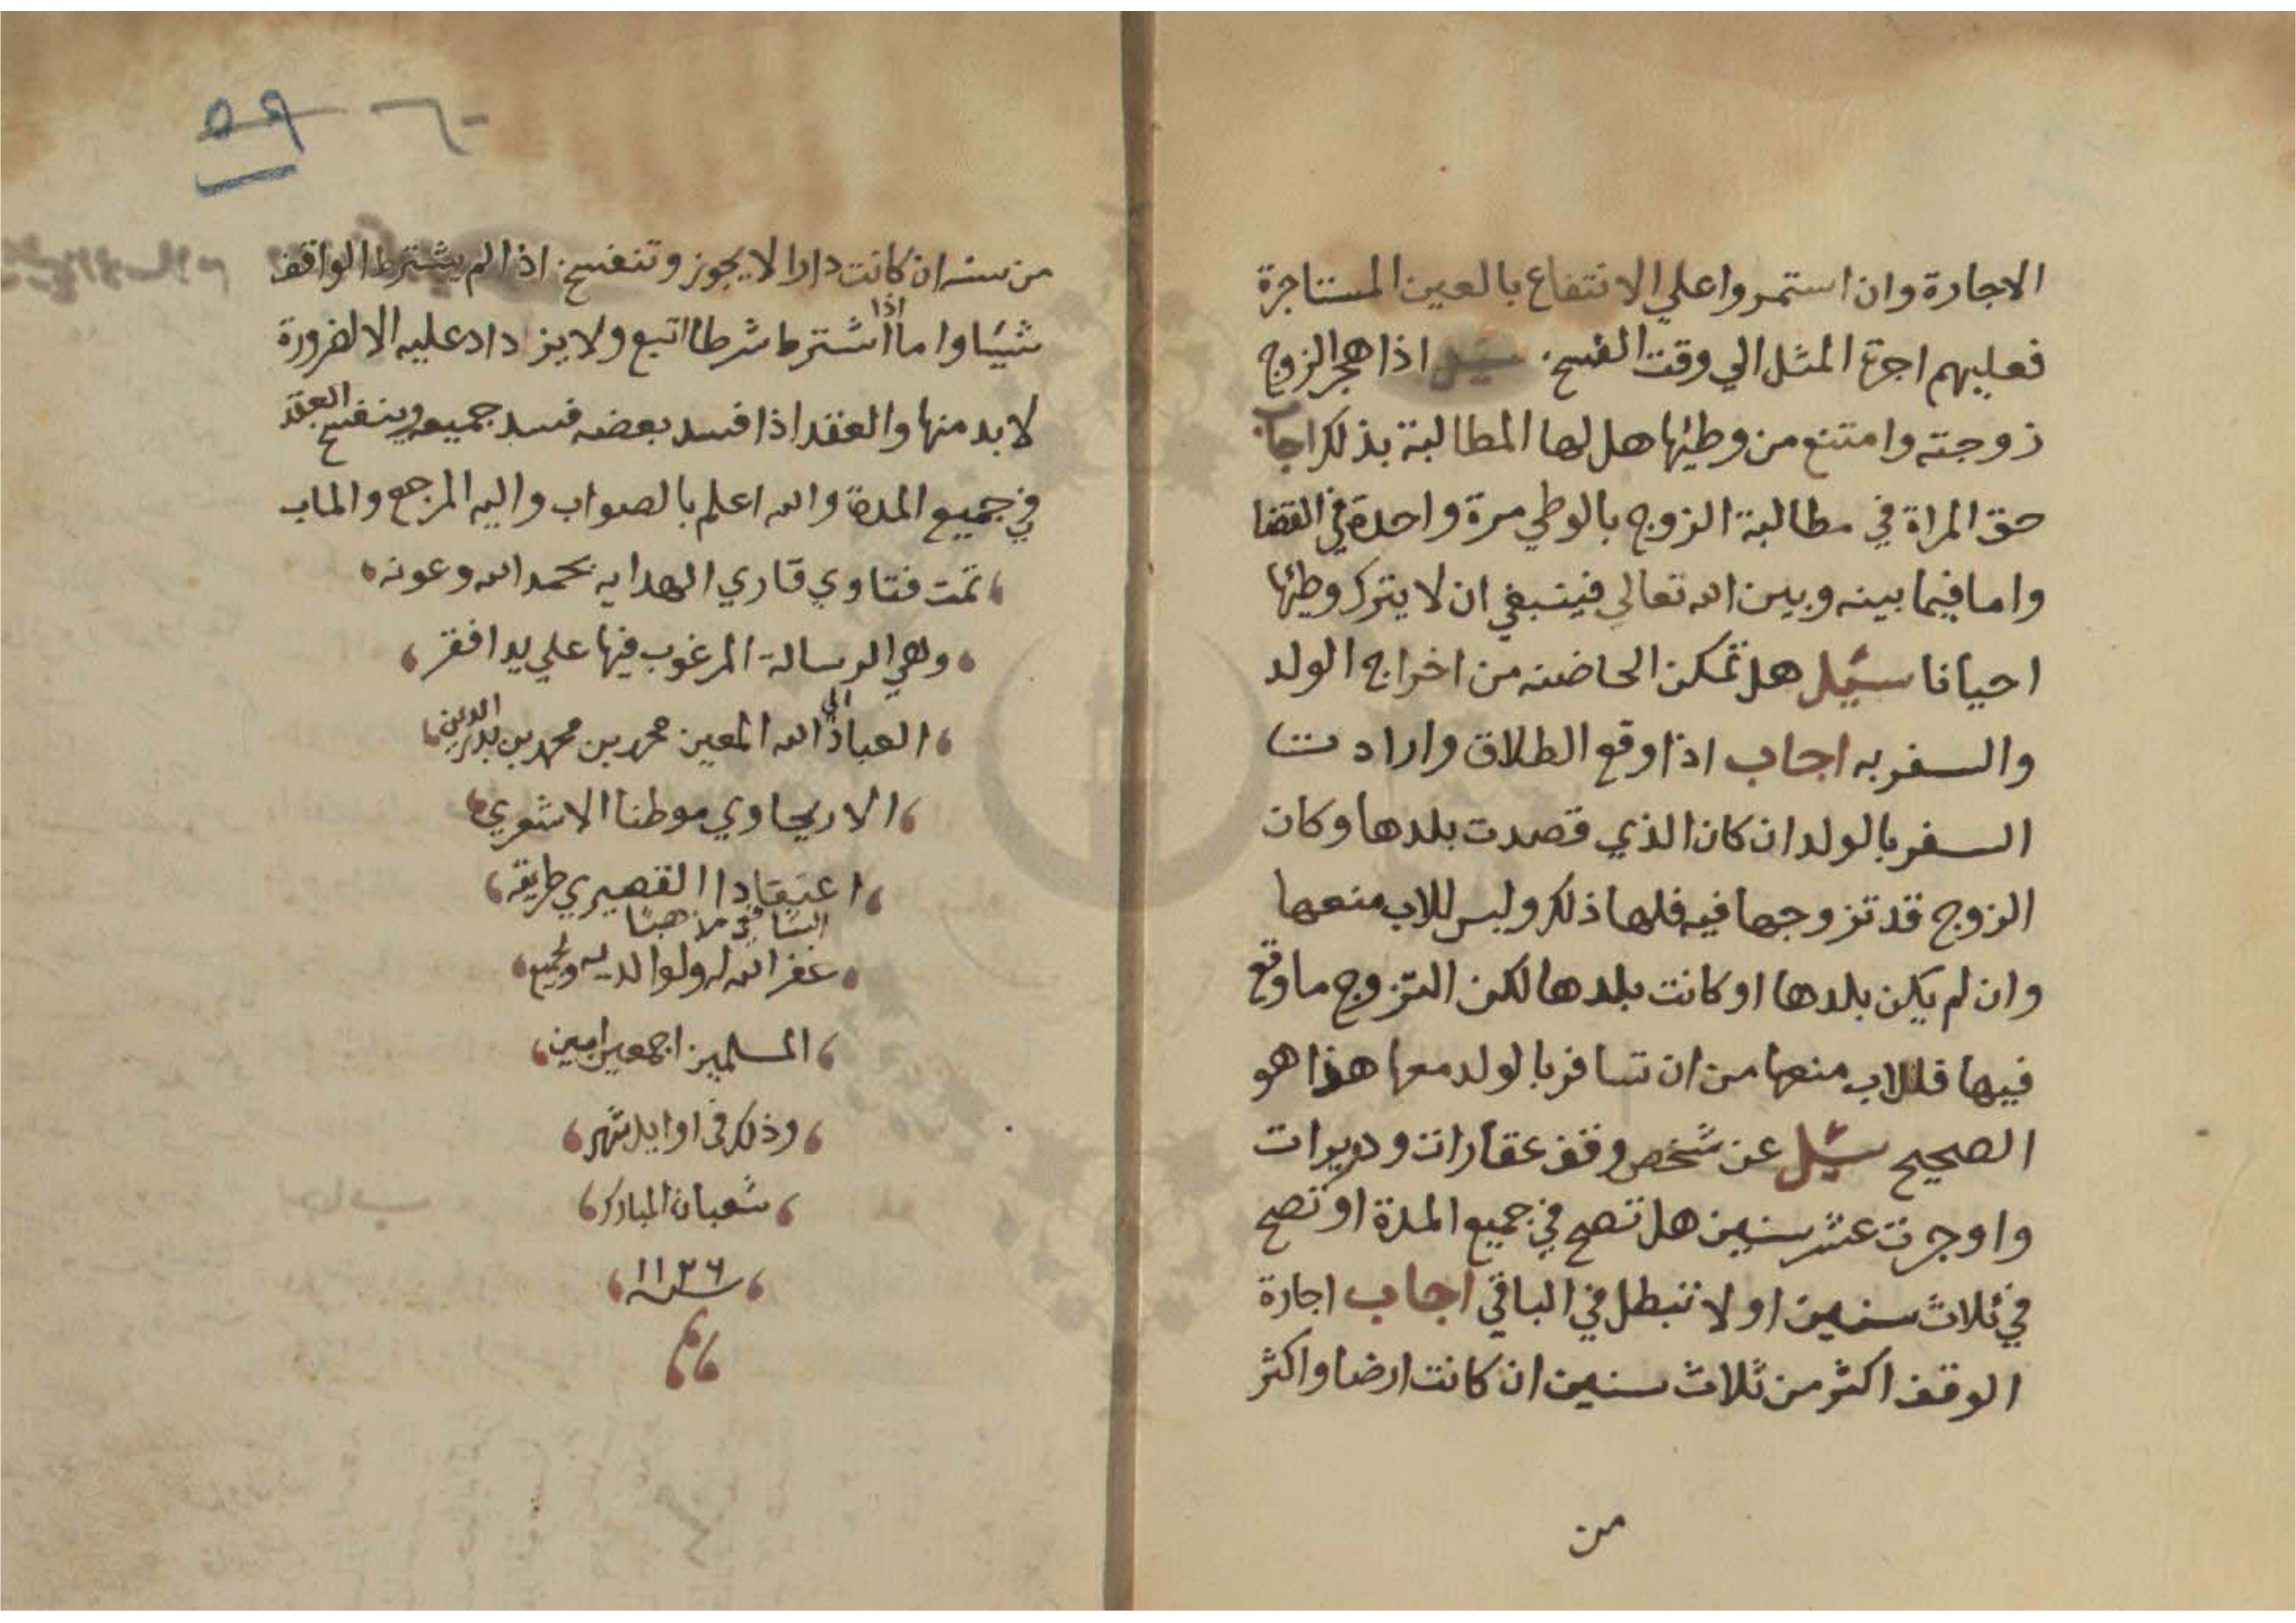 الاجارة وان استمروا علي الانتفاع بالعين المستاجرة
فعليهم اجرة المثل الي وقت الفسخ سئل اذا هجر الزوج
زوجته وامتنع من وطئها هل لها المطالبة بذلك اجاب
حق المراة في مطالبة الزوج بالوطي مرة واحدة في القضا
واما فيما بينه وبين الله تعالي فينبغي ان لا يترك وطئها
احيانا سئل هل تمكن الحاضنه من اخراج الولد
والسفر به اجاب اذا وقع الطلاق وارادت
السفر بالولد ان كان الذي قصدت بلدها وكان
الزوج قد تزوجها فيه فلها ذلك وليس للاب منعها
وان لم يكن بلدها او كانت بلدها لكن التزوج ما وقع
فيها فللاب منعها من ان تسافر بالولد معها هذا هو
الصحيح سئل عن شخص وقف عقارات ودويرات
واوجرت عشر سنين هل تصح في جميع المدة او تصح
في ثلاث سنين او لا تبطل في الباقي اجاب اجارة
الوقف اكثر من ثلاث سنين ان كانت ارضا واكثر
من
٥٩ ٦٠
من سنه ان كانت دارا لا يجوز وتنفسخ اذا لم يشترط الواقف
شيئا واما اذا اشترط شرطا اتبع ولا يزداد عليه الا لضرورة
لا بد منها والعقد اذا فسد بعضه فسد جميعه وينفسخ العقد
في جميع المدة والله اعلم بالصواب واليه المرجع والماب
تمت فتاوي قاري الهدايه بحمد الله وعونه
وهي الرسالة المرغوب فيها علي يد افقر
العباد الي الله المعين محمد بن محمد بن بدر الدين
الاريحاوي موطنا الاشعري
اعتقادا القصيري طريقه
الشافعي مذهبا
غفر الله له ولوالديه ولجميع
المسلمين اجمعين امين
وذلك في اوايل شهر
شعبان المبارك
سنة ١١٢٦